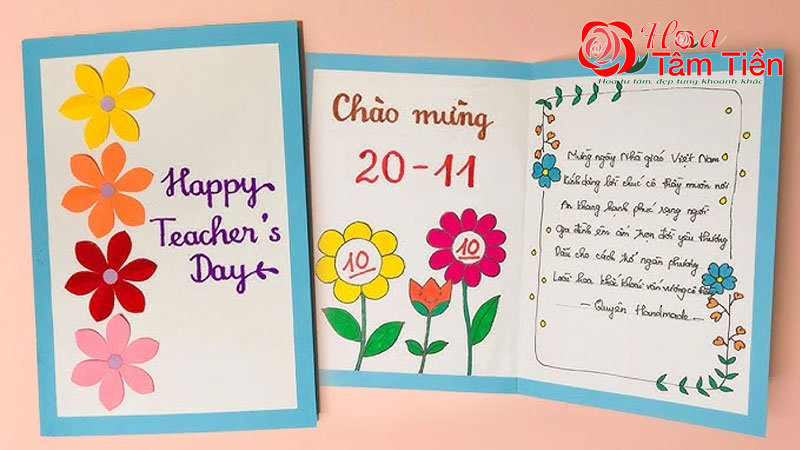 Hoa
Tâm Tiền
Hoa từ tâm, đẹp từng khoảnh khắc
Happy
Teacher's
Day
Chào mừng
20-11
10
10
Mừng ngày Nhà giáo Việt Nam
Kính dâng lời chúc cô thầy muôn nơi
An khang hạnh phúc rạng ngời
Gia đình êm ấm trọn đời yêu thương
Dẫu cho cách trở ngàn phương
Loài hoa khoe khoái vấn vương
- Quyên Handmade -